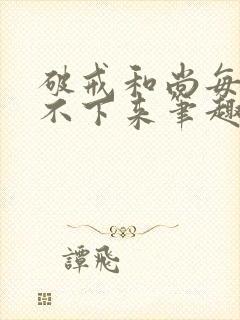 破戒和尚每
不下来筆趣
譚飛